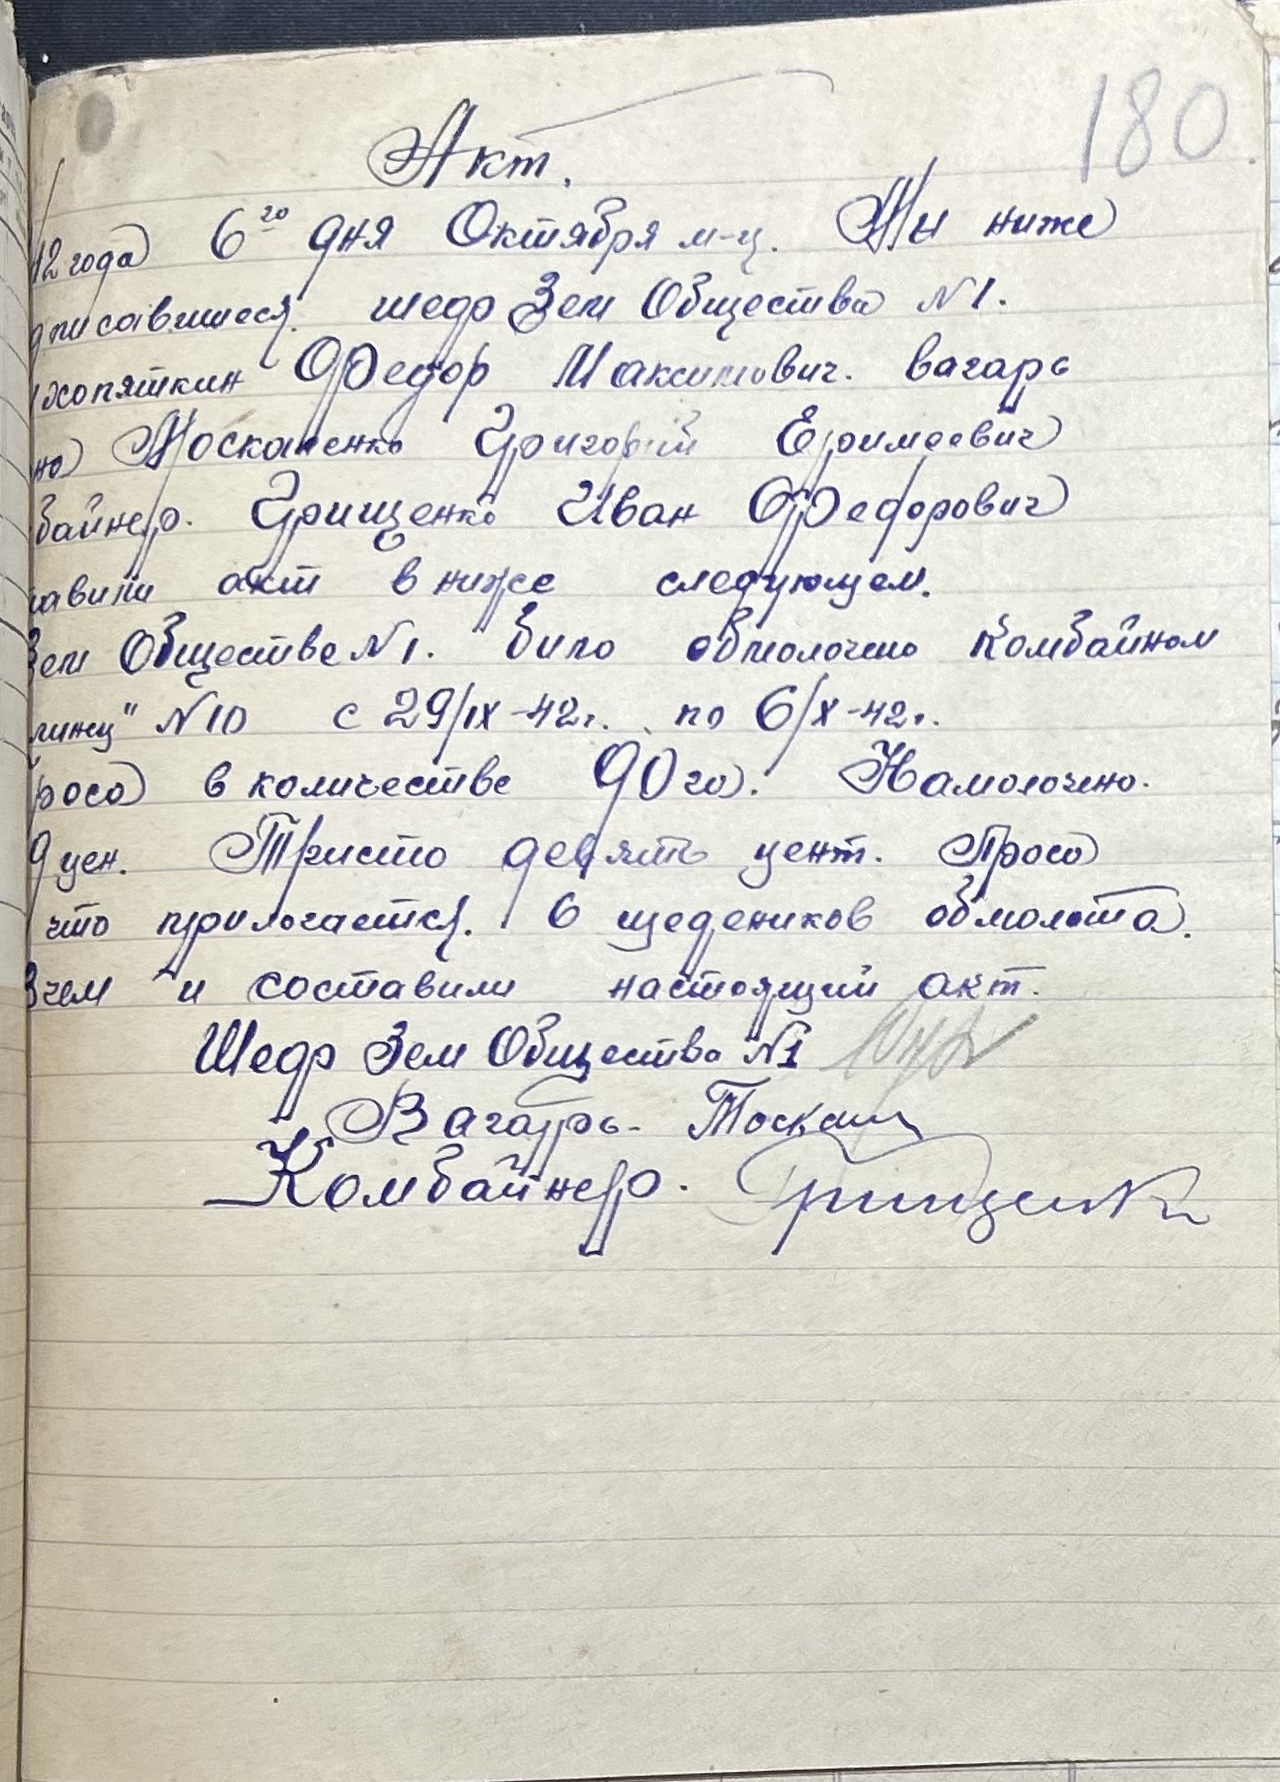 180
Акт.
42 года 6го дня Октября м-ц. Мы ниже
дписавшиеся. шедр Зем Общества N1.
хопяткин Федор Максимович. вагарь
но Москаленко Григорий Ефимович
байнер. Грищенко Иван Федорович
тавили акт в ниже следующем.
Зем Обществе N1. било обмолочено Комбайном
линц" N10 с 29/IX-42г. по 6/X-42г.
росо в количестве 90 га. Намолочено.
9 цен. Тристо девять цент. Просо
что прилогается. 6 щедеников обмолота.
вчем и составили настоящий акт.
Шедр Зем Общества N1
Вагарь. Москал
Комбайнер. Грищенк